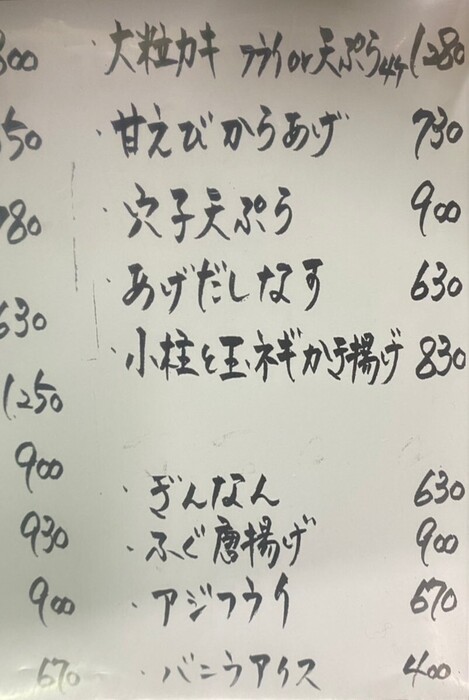 ・大粒カキ フライor天ぷら 4ケ 1280
・甘えびからあげ 730
・穴子天ぷら 900
・あげだしなす 630
・小柱と玉ネギかき揚げ 830
・ぎんなん 630
・ふぐ唐揚げ 900
・アジフライ 670
・バニラアイス 400
800
550
780
630
1250
900
930
900
670